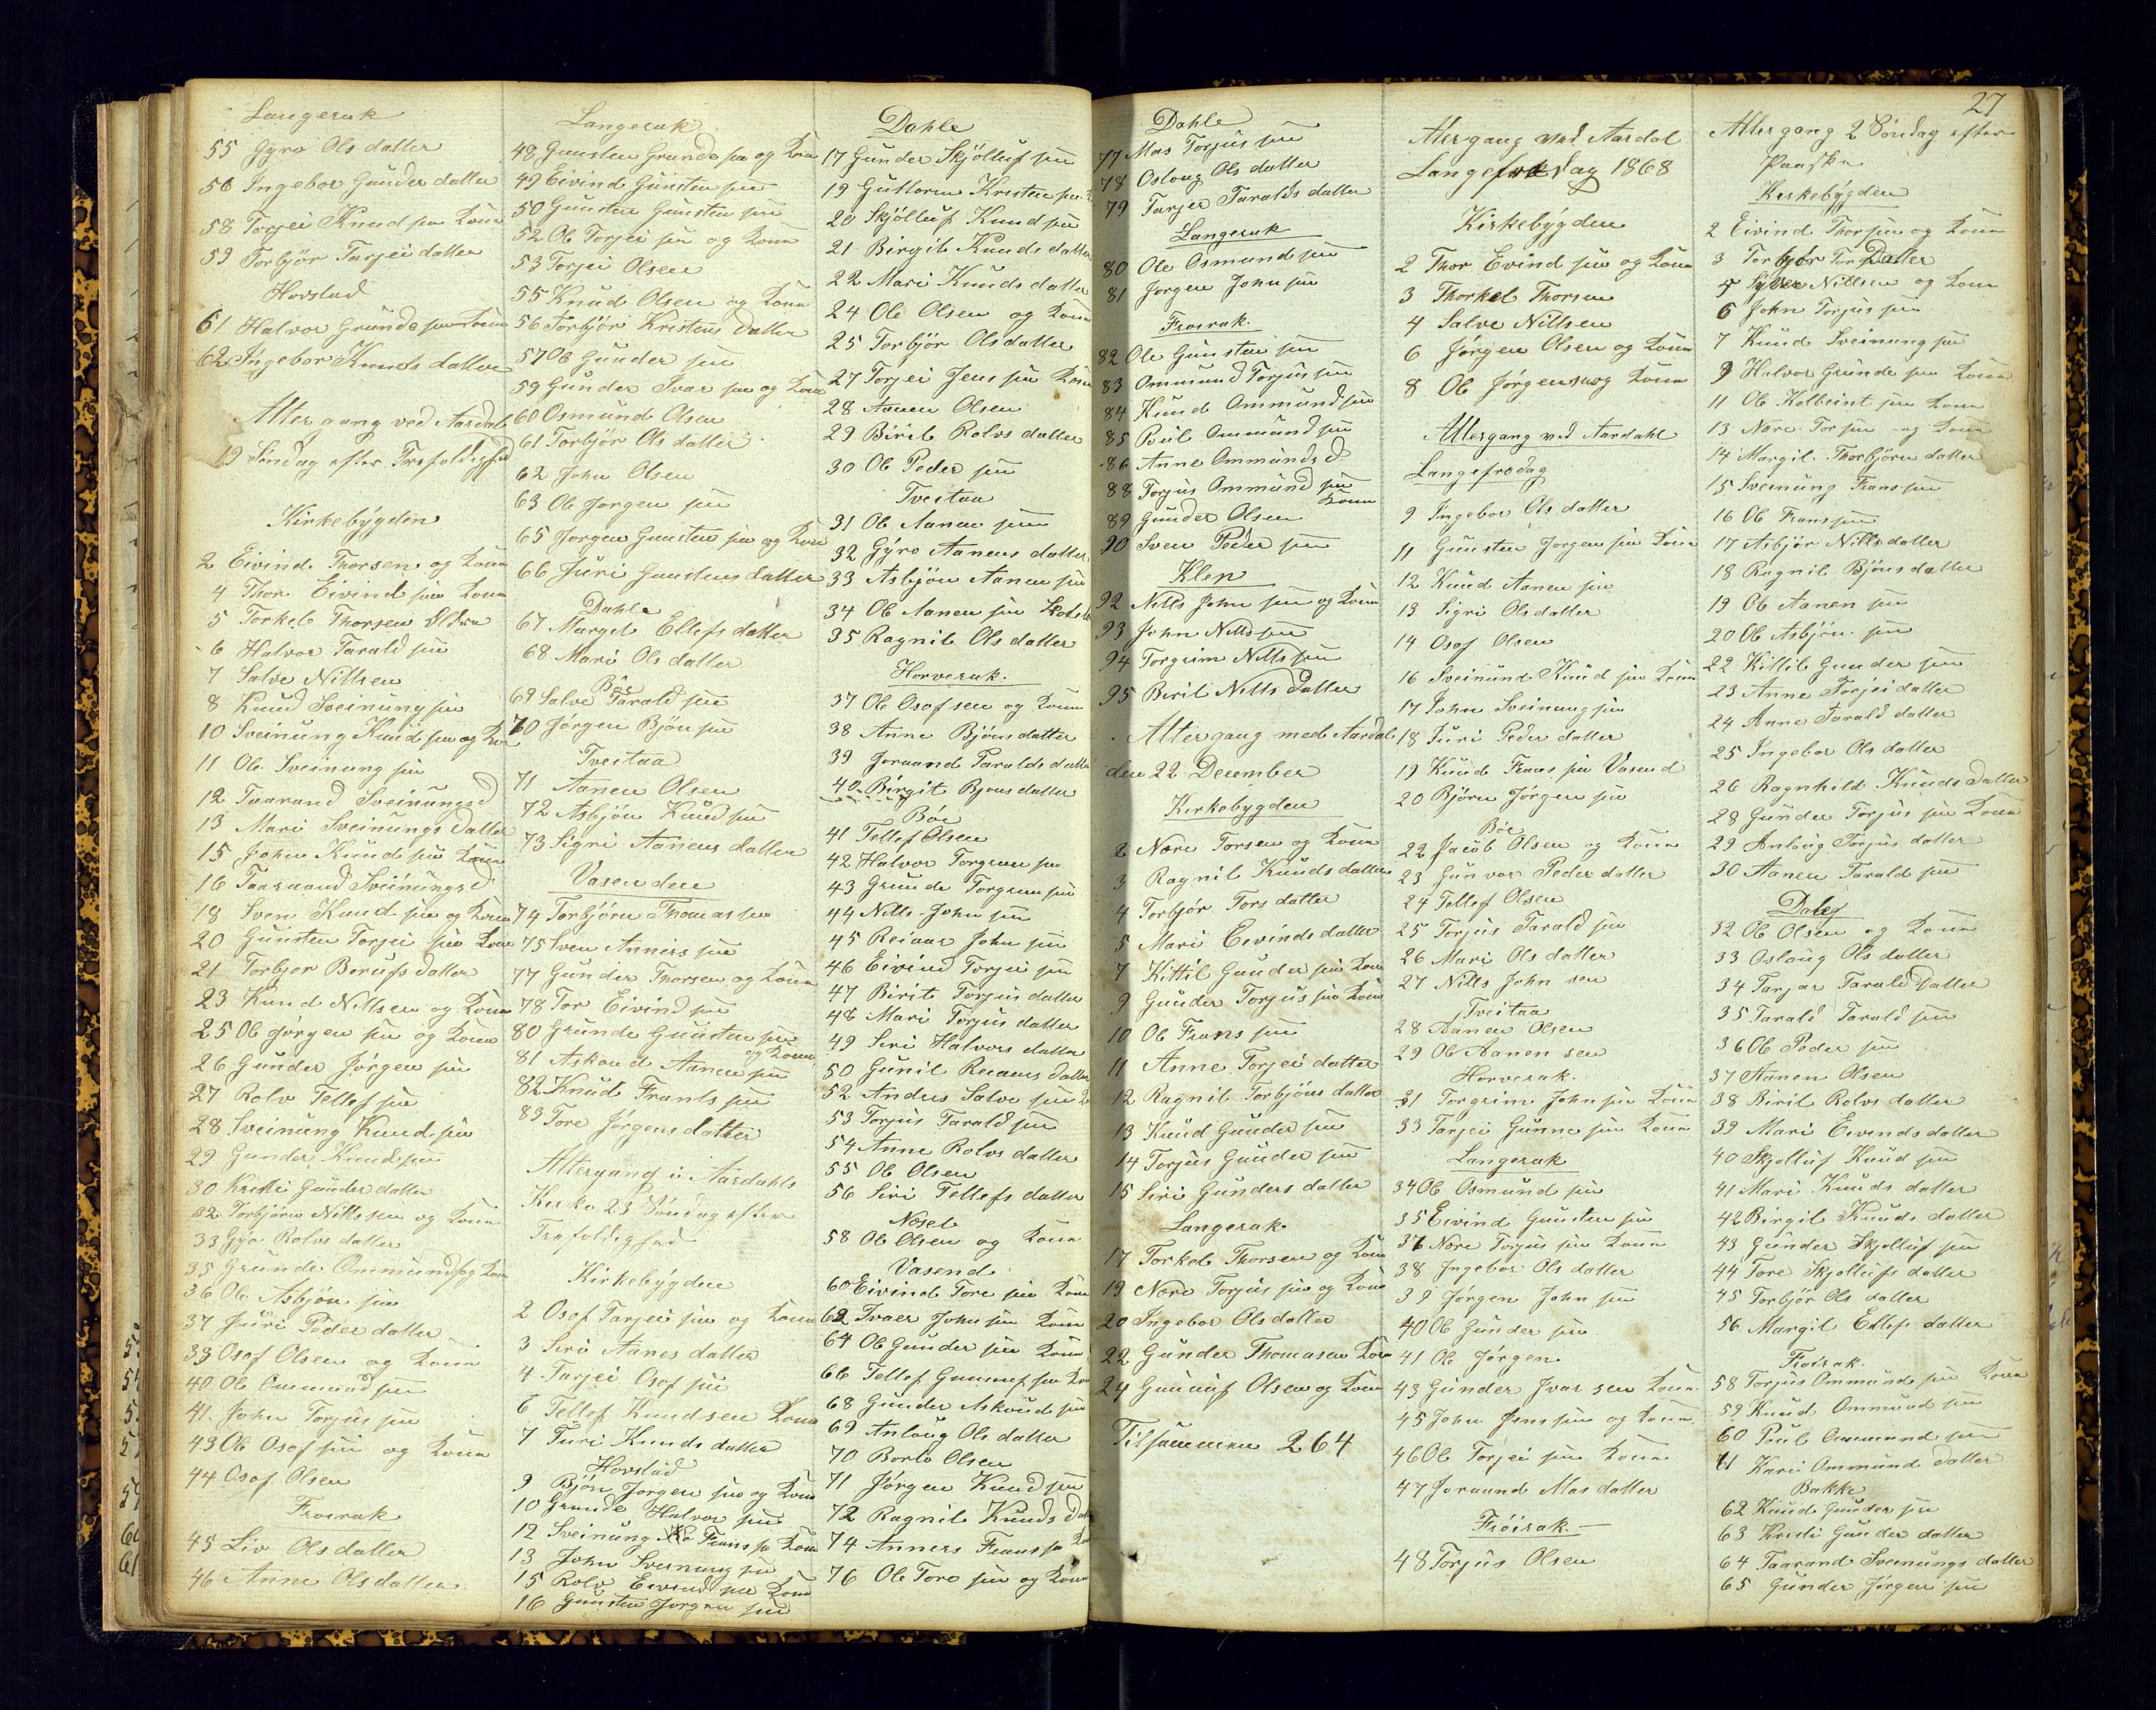 Langerak
55 Gyro Ols datter
56 Ingebor Gunder datter
58 Torjei Knud sen Kona
59 Torbjör Tarjei datter
Hovslad
61 Halvor Grunde sen Kona
62 Ingebor Knuds datter
Alter gang ved Aardal
19 Søndag efter Trefoldighed
Kirkebygden
2 Eivind Thorsen og Kona
4 Thor Eivind sen Kona
5 Torkel Thorsen
6 Halvor Tarald sen
7 Salve Nillsen
8 Knud Sveinung sen
10 Sveinung Knud sen og Kon
11 Ole Sveinung sen
12 Taarand Sveinungs d
13 Mari Sveinungs datter
15 John Knud sen Kona
16 Taaraand Sveinungs d
18 Sven Knud sen og Kona
20 Gunsten Torjei sen Kona
21 Torbjor Berufs datter
23 Knud Nillsen og Kona
25 Ole Jørgen sen og Kona
26 Gunder Jørgen sen
27 Rolv Tellef sen
28 Sveinung Knud sen
29 Gunder Knud sen
30 Kristi Gunder datter
32 Torbjörn Nills sen og Kona
33 Gyro Rolvs datter
35 Grunde Ommund sen og Kon
36 Ole Asbjön sen
37 Juri Peder datter
33 Osof Olsen og Kona
40 Ole Ommund sen
41 John Torjus sen
43 Ole Osof sen og Kona
44 Osof Olsen
Froirak
45 Liv Ols datter
46 Anne Ols datter
Langerak
48 Gunsten Grunde sen og Kona
49 Eivind Gunsten sen
50 Gunsten Gunsten sen
52 Ole Torjei sen og Kona
53 Torjei Olsen
55 Knud Olsen og Kona
56 Torbjör Kristens datter
57 Ole Gunder sen
59 Gunder Ivar sen og Kona
60 Osmund Olsen
61 Torbjör Ols datter
62 John Olsen
63 Ole Jorgen sen
65 Jorgen Gunsten sen og Kone
66 Juri Gunstens datter
Dahle
67 Margit Ellefs datter
68 Mari Ols datter
Böe
69 Salve Tarald sen
70 Jörgen Bjön sen
Tveitaa
71 Aanen Olsen
72 Asbjön Knud sen
73 Sigri Aanens datter
Vasenden
74 Torbjörn Thomas sen
75 Sven Anners sen
77 Gunder Thorsen og Kona
78 Tor Eivind sen
80 Grunde Gunsten sen
og Kona
81 Askoud Aanen sen
82 Knud Frants sen
83 Tore Jörgens datter
Altergang i Aardahls
Kirke 23 Söndag efter
Trefoldighed
Kirkebygden
2 Osof Tarjei sen og Kona
3 Siri Aanes datter
4 Tarjei Osof sen
6 Tellef Knudsen Kona
7 Turi Knuds datter
Hovslad
9 Bjön Jorgen sen og Kona
10 Grunde Halvor sen
12 Sveinung Frans sen Kona
13 John Sveinung sen
15 Rolv Eivind sen Kona
16 Gunsten Jorgen sen
Dahle
17 Gunder Skjölluf sen
19 Guttorm Kristen sen
20 Skjölluf Knud sen
21 Birgit Knuds datter
22 Mari Knuds datter
24 Ole Olsen og Kona
25 Torbjör Ols datter
27 Torjei Jens sen Kona
28 Aanen Olsen
29 Birit Rolvs datter
30 Ole Peder sen
Tveitaa
31 Ole Aanen sen
32 Gyro Aanens datter
33 Asbjön Aanen sen
34 Ole Aanen sen
35 Ragnil Ols datter
Horverak.
37 Ole Osofsen og Kona
38 Anne Bjöns datter
39 Joraand Taralds datter
40 Birgit Bjons datter
Böe
41 Tellef Olsen
42 Halvor Torgrim sen
43 Grunde Torgrim sen
44 Nills John sen
45 Reiaar John sen
46 Eivind Torjei sen
47 Birit Torjus datter
48 Mari Torjus datter
49 Siri Halvors datter
50 Gunil Reiaars datter
52 Anders Salve sen
53 Torjus Tarald sen
54 Anne Rolvs datter
55 Ole Olsen
56 Siri Tellefs datter
Nosel
58 Ole Olsen og Kona
Vasend
60 Eivind Tore sen Kona
62 Ivaer John sen Kona
64 Ole Gunder sen Kona
66 Tellef Gunnuf sen Kon
68 Gunder Askoud sen
69 Anloug Ols datter
70 Borto Olsen
71 Jörgen Knud sen
72 Ragnil Knuds dat
74 Anners Frans sen
76 Ole Tore sen og Kona
Dahle
77 Mas Torjus sen
78 Osloug Ols datter
79 Tarjer Taralds datter
Langerak
80 Ole Osmund sen
81 Jorgen John sen
Froirak.
82 Ole Gunsten sen
83 Ommund Torjus sen
84 Knud Ommund sen
85 Poul Ommund sen
86 Anne Ommunds d
88 Torjus Ommund sen
Kona
89 Gunder Olsen
90 Sven Peder sen
Klep
92 Nills John sen og Kona
93 John Nills sen
94 Torgrim Nills sen
95 Beril Nills datter
Altergang med Aardal
den 22 December
Kirkebygden
2 Nære Torsen og Kona
3 Ragnil Knuds datter
4 Torbjör Tors datter
5 Mari Eivinds datter
7 Kittil Gunder sen Kona
9 Gunder Torjus sen Kona
10 Ole Frans sen
11 Anne Torjei datter
12 Ragnil Torbjöns datter
13 Knud Gunder sen
14 Torjus Gunder sen
15 Siri Gunders datter
Langerak
17 Torkel Thorsen og Kona
19 Næro Torjus sen og Kona
20 Ingebor Ols datter
22 Gunder Thomasen Kona
24 Gunnuf Olsen og Kona
Tilsammen 264
Altergang ved Aardal
Langefredag 1868
Kirkebygden
2 Thor Evind sen og Kona
3 Thorkel Thorsen
4 Salve Nillsen
6 Jörgen Olsen og Kona
8 Ole Jörgensen og Kona
Altergang ved Aardahl
Langefredag
9 Ingebor Ols datter
11 Gunsten Jorgen sen Kona
12 Knud Aanen sen
13 Sigri Ols datter
14 Osof Olsen
16 Sveinund Knud sen Kona
17 John Sveinung sen
18 Juri Peder datter
19 Knud Frans sen Vasend
20 Björn Jörgen sen
Böe
22 Jacob Olsen og Kona
23 Gunvor Peder datter
24 Tellef Olsen
25 Torjus Tarald sen
26 Mari Ols datter
27 Nills John sen
Tveitaa
28 Aanen Olsen
29 Ole Aanen sen
Horverak.
31 Torgrim John sen Kona
33 Tarjei Gunne sen Kona
Langerak
34 Ole Osmund sen
35 Eivind Gunsten sen
37 Nore Torjus sen Kona
38 Ingebor Ols datter
39 Jörgen John sen
40 Ole Gunder sen
41 Ole Jörgen
43 Gunder Ivar sen Kona
45 John Jens sen og Kona
46 Ole Torjei sen Kona
47 Joraand Mas datter
Fröirak.
48 Torjus Olsen
27
Altergang 2 Söndag efter
Paaske
Kirkebygden
2 Eivind Thorsen og Kona
3 Torbjör Tors Datter
5 Nillsen og Kona
6 John Torjus sen
7 Knud Sveinung sen
9 Halvor Grunde sen Kona
11 Ole Kolbeint sen Kona
13 Nære Tor sen og Kona
14 Margit Thorbjörn datter
15 Sveinung Frans sen
16 Ole Frans sen
17 Asbjör Nills datter
18 Ragnil Bjöns datter
19 Ole Aanen sen
20 Ole Asbjön sen
22 Kittil Gunder sen
23 Anne Torjei datter
24 Anne Tarald datter
25 Ingebor Ols datter
26 Ragnhild Knuds datter
28 Gunder Torjus sen Kona
29 Anloug Torjus datter
30 Aanen Tarald sen
Dales
32 Ole Olsen og Kona
33 Osloug Ols datter
34 Tarjar Tarald Datter
35 Tarald Tarald sen
36 Ole Peder sen
37 Aanen Olsen
38 Biril Rolvs datter
39 Mari Eivinds datter
40 Skjolluf Knud sen
41 Mari Knuds datter
42 Birgit Knuds datter
43 Gunder Skjolluf sen
44 Tore Skjollufs datter
45 Torbjör Ols datter
56 Margit Ellef datter
Froirak.
58 Torjus Ommund sen Kona
59 Knud Ommund sen
60 Poul Ommund sen
61 Kari Ommund datter
Bakke
62 Knud Gunder sen
63 Kristi Gunder datter
64 Taarand Sveinungs datter
65 Gunder Jörgen sen